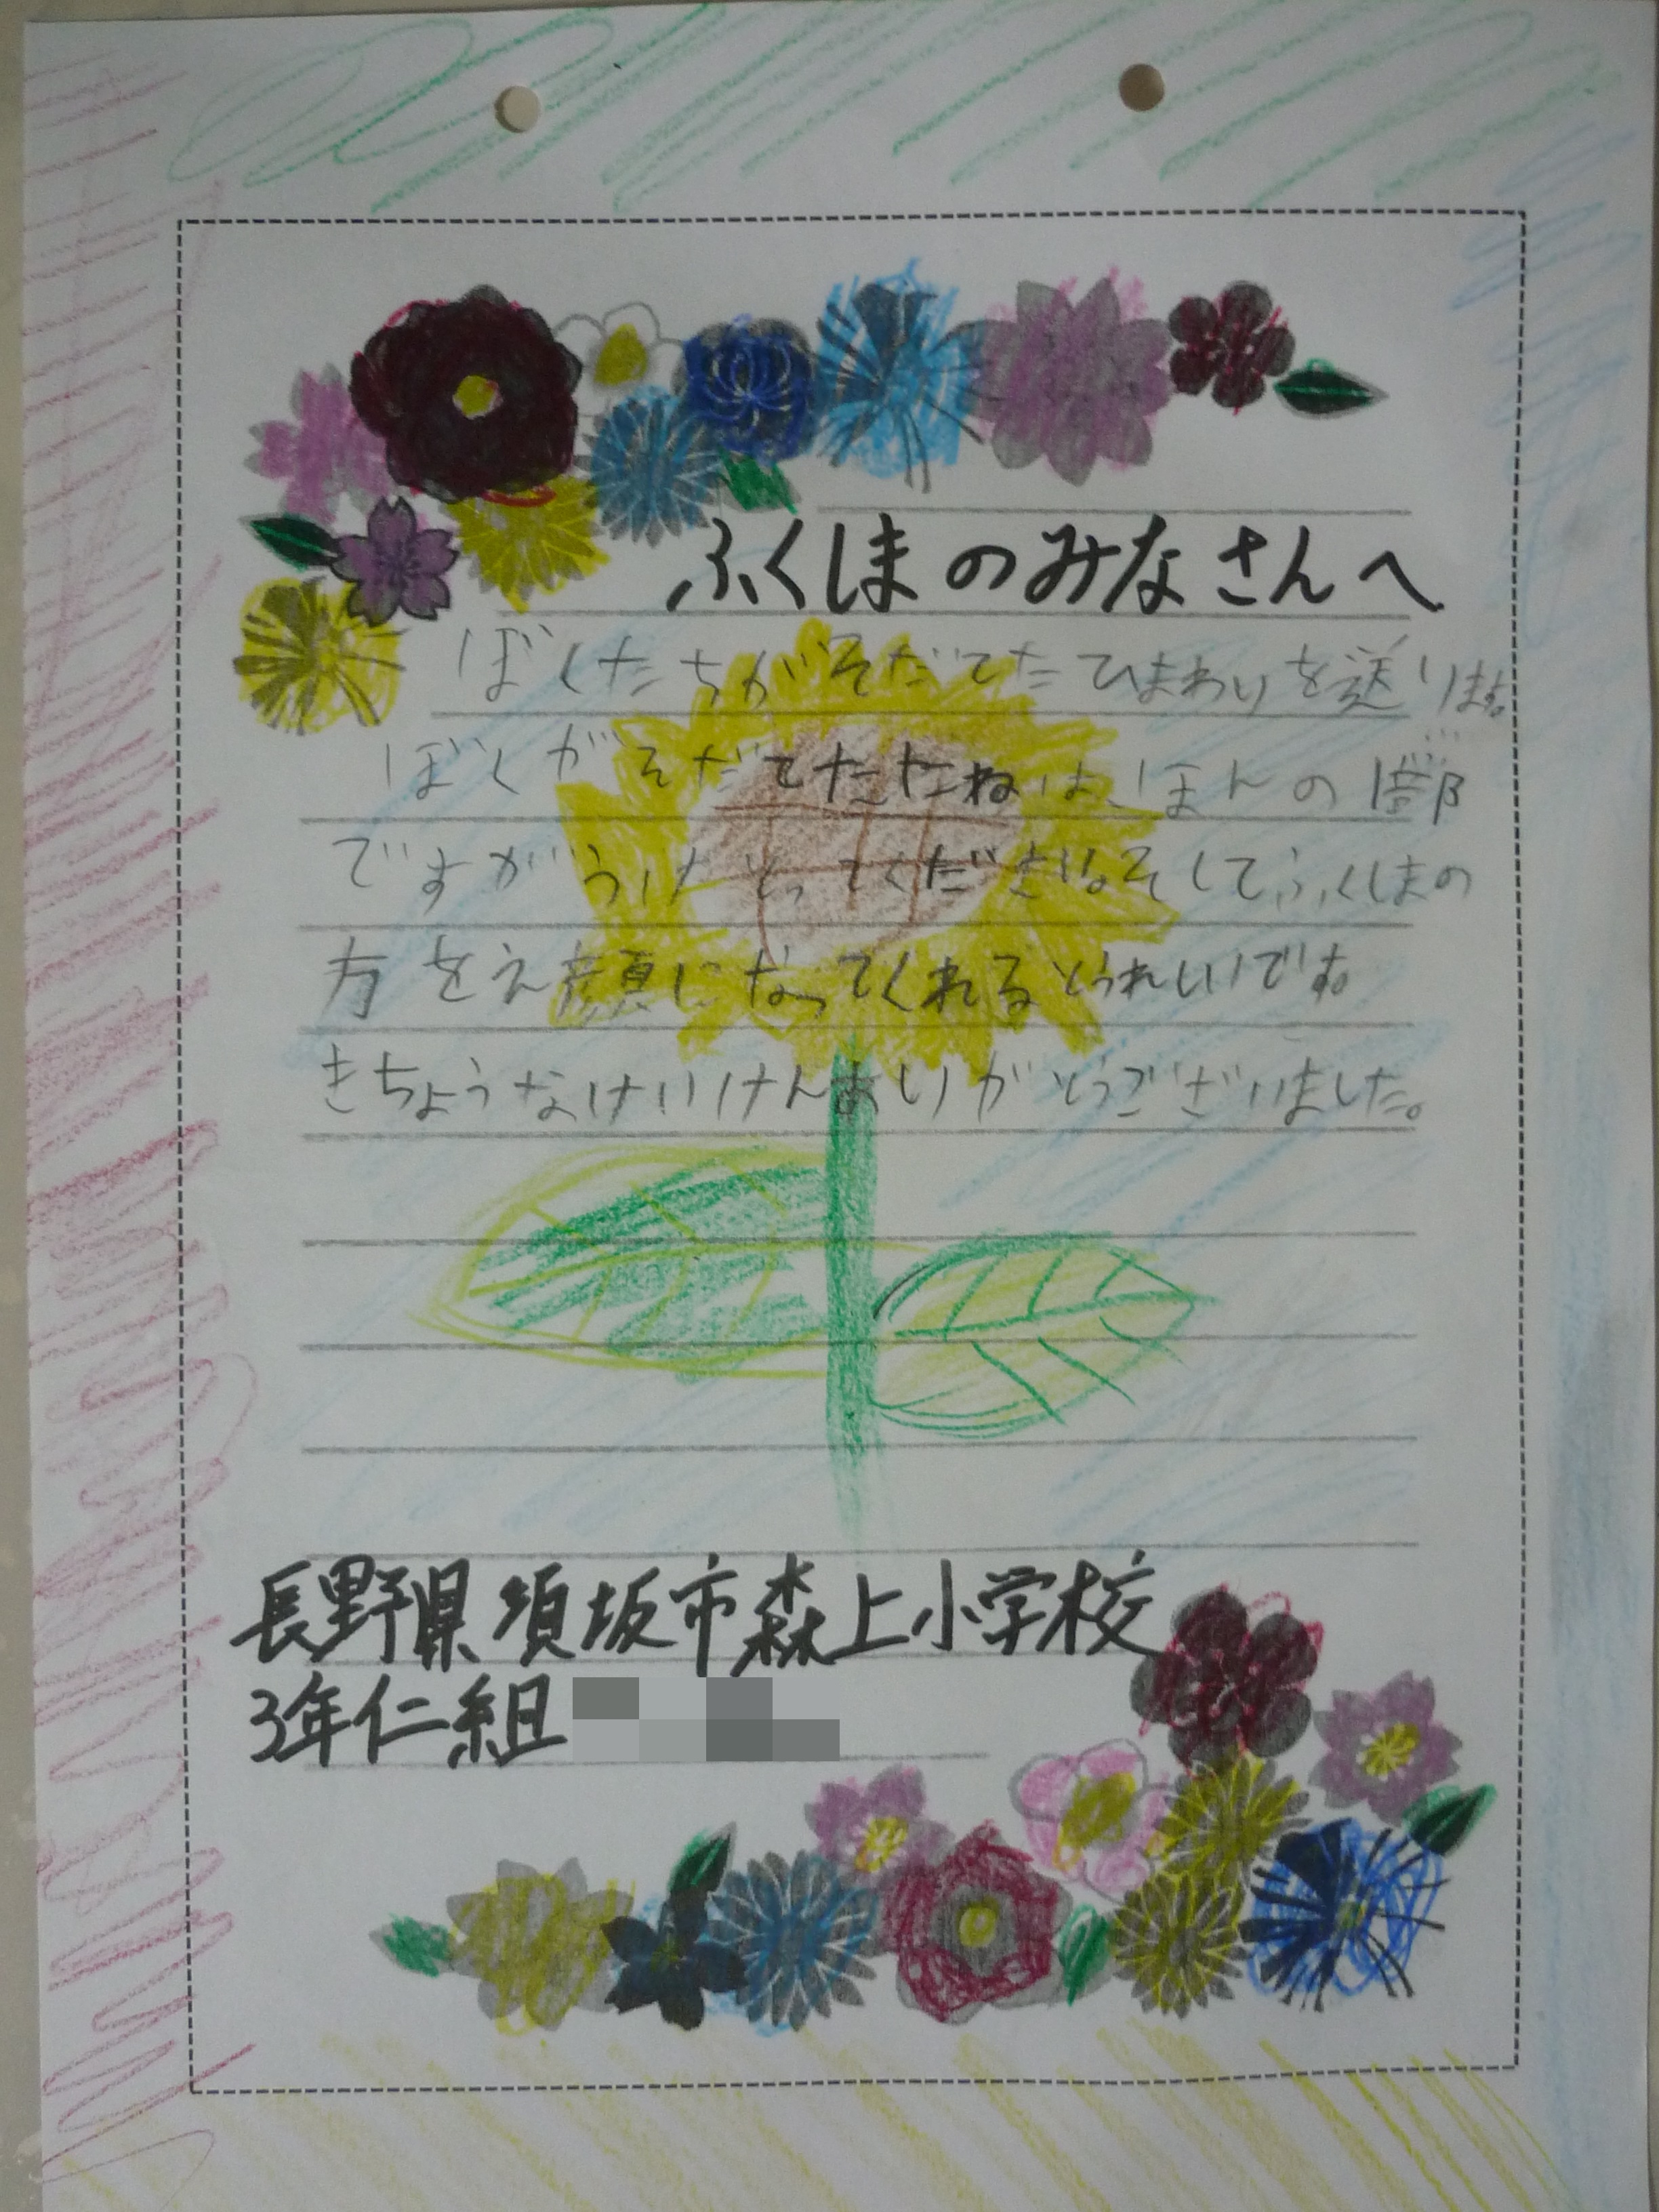 ふくしまのみなさんへ
ぼくたちがそだてたひまわりを送ります。
ぼくがそだてたたねは、ほんの一部
ですがうけとってください。そしてふくしまの
方をえ顔になってくれるとうれしいです。
きちょうなけいけんありがとうございました。
長野県須坂市森上小学校
3年仁組